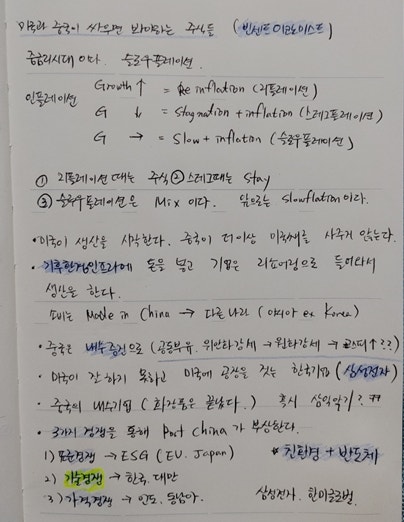 미국과 중국이 싸우면 봐야하는 주식들 (빈센트이코노미스트)
중금리시대이다. 슬로우플레이션.
인플레이션
Growth ↑ = Re inflation (리플레이션)
G ↓ = stagnation + inflation (스테그플레이션)
G → = Slow + inflation (슬로우플레이션)
① 리플레이션때는 주식 ② 스테그때는 stay
③ 슬로우플레이션은 Mix 이다. 앞으로는 slowflation이다.
• 미국이 생산을 시작한다. 중국이 더이상 미국채를 사주지 않는다.
• 기후환경인프라에 돈을 붓고 기업은 리쇼어링으로 들어와서
생산을 한다.
소비는 Made in China → 다른나라 (아시아 ex Korea)
• 중국은 내수증진으로 (공동부유. 위안화강세 → 원화강세 → ↑??)
• 미국이 잘 하지 못하고 미국에 공장을 짓는 한국기업 (삼성전자)
• 중국의 내수기업 (화장품은 끝났다.) 혹시 삼익악기? ㅋㅋ
• 3가지 경쟁을 통해 Post China 가 부상한다.
1) 표준경쟁 → ESG (EU. Japan) * 친환경 + 반도체
2) 기술경쟁 → 한국. 대만
3) 가격경쟁 → 인도. 동남아. 삼성전자. 한미글로벌.